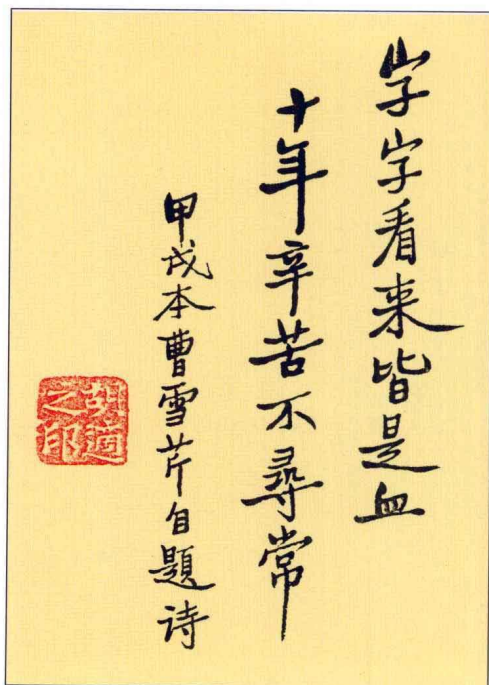 字字看来皆是血
十年辛苦不尋常
甲戌本曹雪芹自題诗
胡適之印